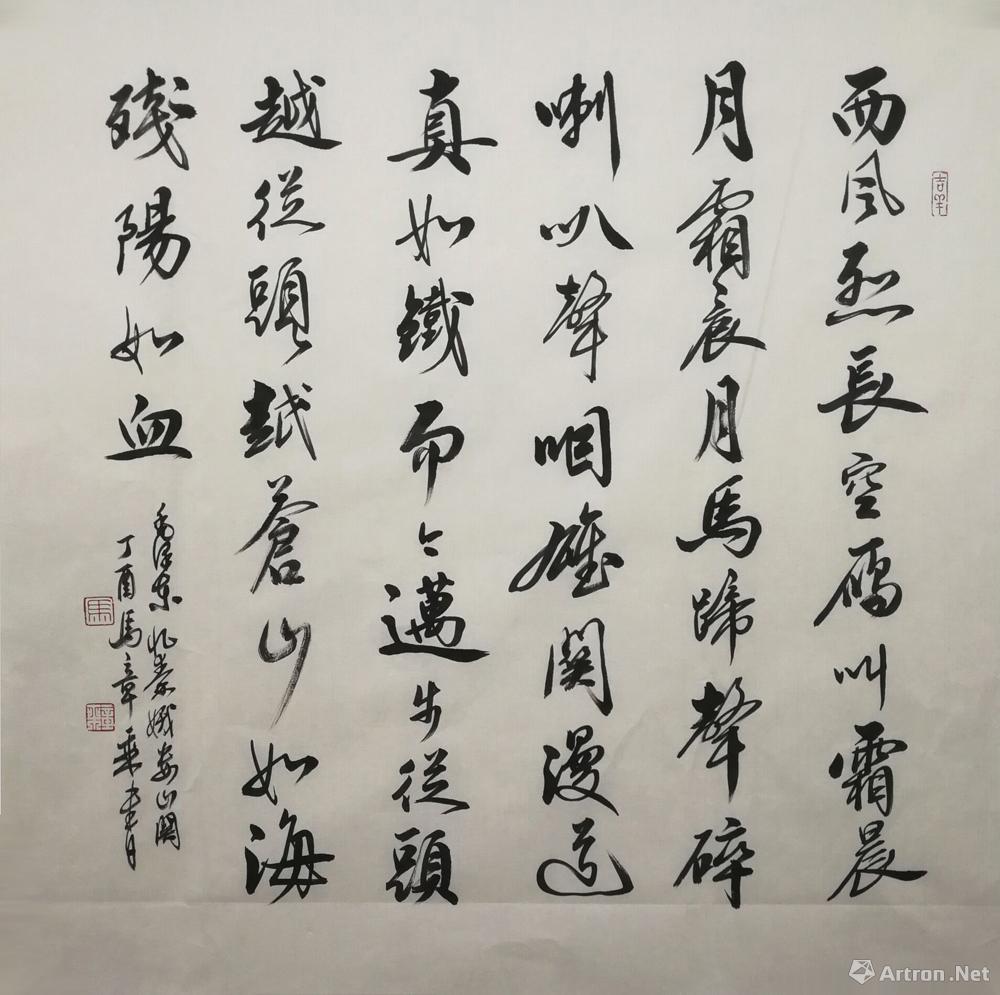 西風烈長空雁叫霜晨
月霜晨月馬蹄聲碎
喇叭聲咽雄關漫道
真如鐵而今邁步從頭
越從頭越蒼山如海
殘陽如血
毛澤東忆秦娥娄山關
丁酉馬章乘
吉羊
馬
Artron.Net